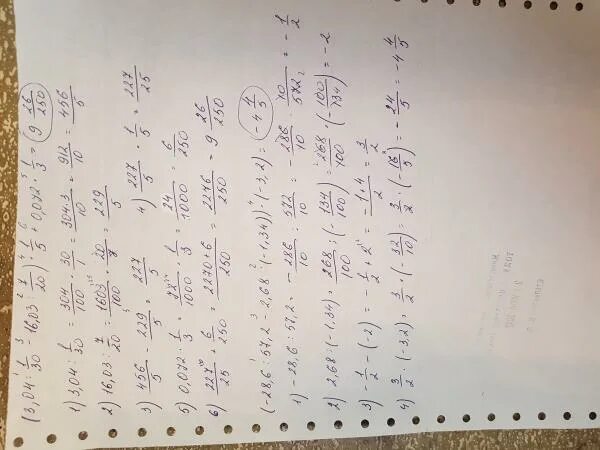 (3,04 : 1/30 - 16,03 : 7/20) · 1/5 + 0,072 · 1/3 = (9 26/250)
1) 3,04 : 1/30 = 304/100 · 30/1 = 304·3/10 = 912/10 = 456/5
2) 16,03 : 7/20 = 1603/100 · 20/7 = 229/5
3) 456/5 - 229/5 = 227/5 4) 227/5 · 1/5 = 227/25
5) 0,072 · 1/3 = 72/1000 · 1/3 = 24/1000 = 6/250
6) 227/25 + 6/250 = 2270+6/250 = 2276/250 = 9 26/250
(-28,6 : 57,2 - 2,68 : (-1,34)) · (-3,2) = (-4 4/5)
1) -28,6 : 57,2 = - 286/10 : 572/10 = - 286/10 · 10/572 = - 1/2
2) 2,68 : (-1,34) = 268/100 : (- 134/100) = 268/100 · (100/-134) = -2
3) - 1/2 - (-2) = - 1/2 + 2 = -1+4/2 = 3/2
4) 3/2 · (-3,2) = 3/2 · (- 32/10) = 3/2 · (- 16/5) = - 24/5 = -4 4/5